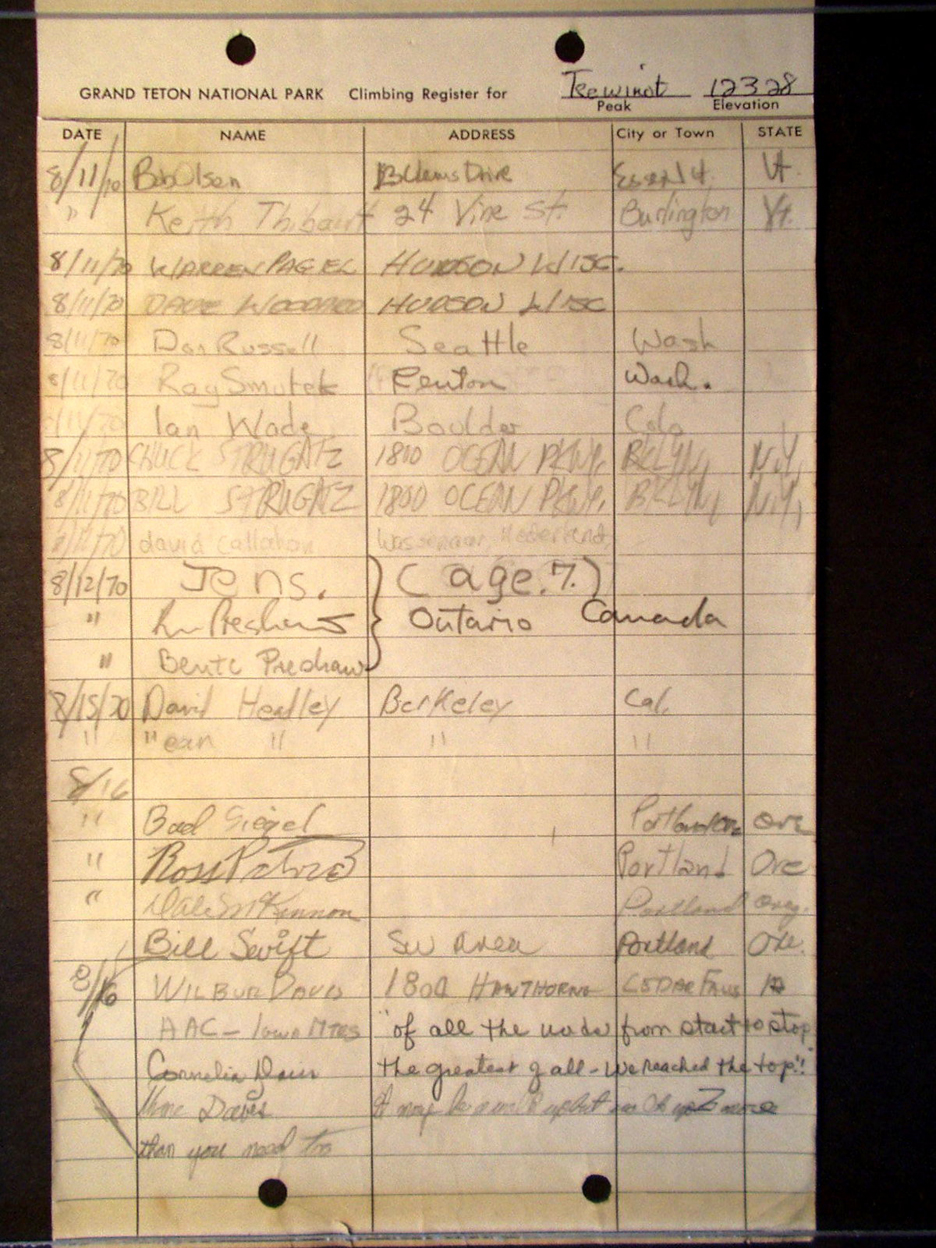 GRAND TETON NATIONAL PARK Climbing Register for Teewinot 12328
Peak Elevation
DATE NAME ADDRESS City or Town STATE
8/11/70 Bob Olsen Drive Vt.
" Keith Thibault 24 Vine St. Burlington Vt.
8/11/70 WARREN PAGEL HUDSON WISC.
8/11/70 DAVE HUDSON WISC
8/11/70 Don Russell Seattle Wash
8/11/70 Ray Smutek Renton Wash.
8/11/70 Ian Wade Boulder Colo
8/11/70 CHUCK STRUGATZ 1800 OCEAN PKWY, BKLYN, N.Y,
8/11/70 BILL STRUGATZ 1800 OCEAN PKWY, BKLYN, N.Y,
8/11/70 david callahan Wassenaar, Nederland,
8/12/70 Jens. (age. 7.)
" Preshaw Ontario Canada
" Bente Preshaw
8/15/70 David Headley Berkeley Cal.
" " ean " " "
8/16
" Siegel Portland Ore
" Ross Portland Ore
" Dale McKinnon Portland Oreg.
Bill Swift SW Area Portland Ore.
8/16 WILBUR DAVIS 1800 HAWTHORNE CEDAR FALLS IA
AAC - Iowa MTRS "of all the words from start to stop
Cornelia Davis the greatest of all - we reached the top"!
Davis
than you need too